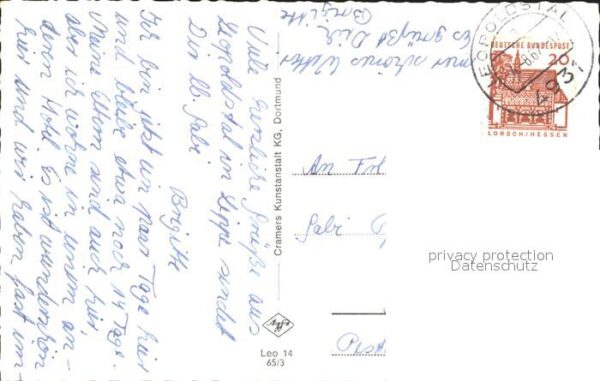 Viele herzliche Grüße aus
Leopoldstal in Lippe sendet
Dir lb. Gabi
Brigitte
Ich bin jetzt ein paar Tage hier
und bleibe etwa noch 14 Tage.
Meine Eltern sind auch hier,
aber wir wohnen in einem an-
deren Hotel. Es ist wunderschön
hier und wir haben fast im-
mer schönes Wetter
Es grüßt Dich
Brigitte
Cramers Kunstanstalt KG, Dortmund
Leo 14
65/3
An Frl
Gabi
LEOPOLDSTAL
4931
DEUTSCHE BUNDESPOST
20
LORSCH/HESSEN
privacy protection
Datenschutz